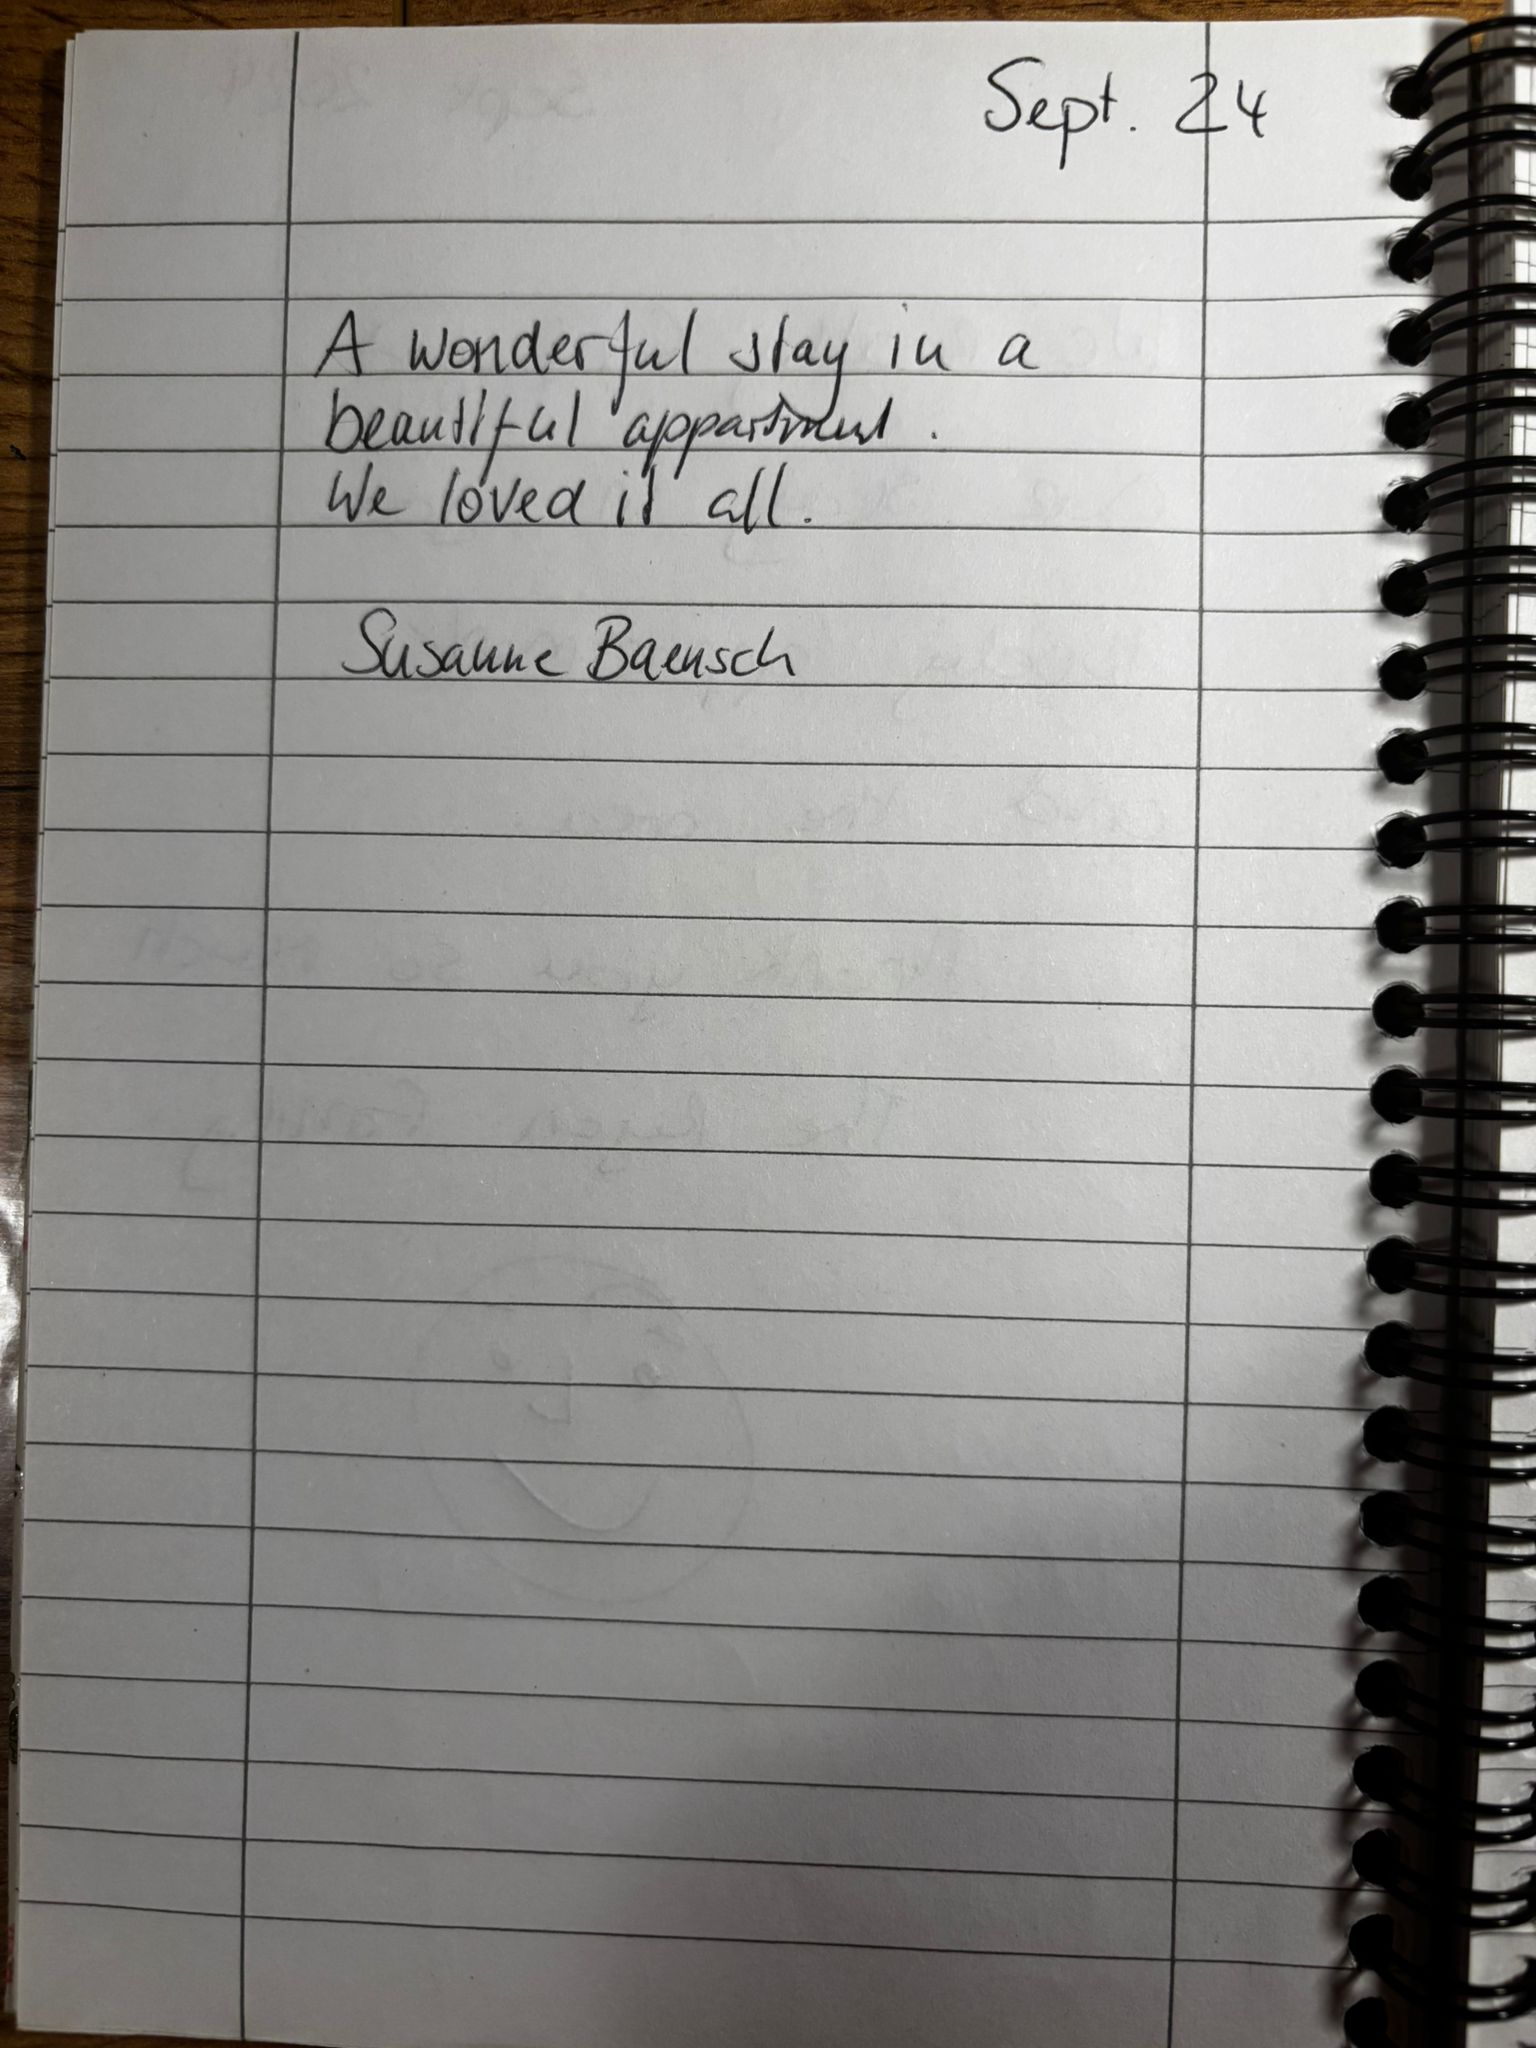 Sept. 24
A wonderful stay in a
beautiful appartment.
We loved it all.
Susanne Baensch